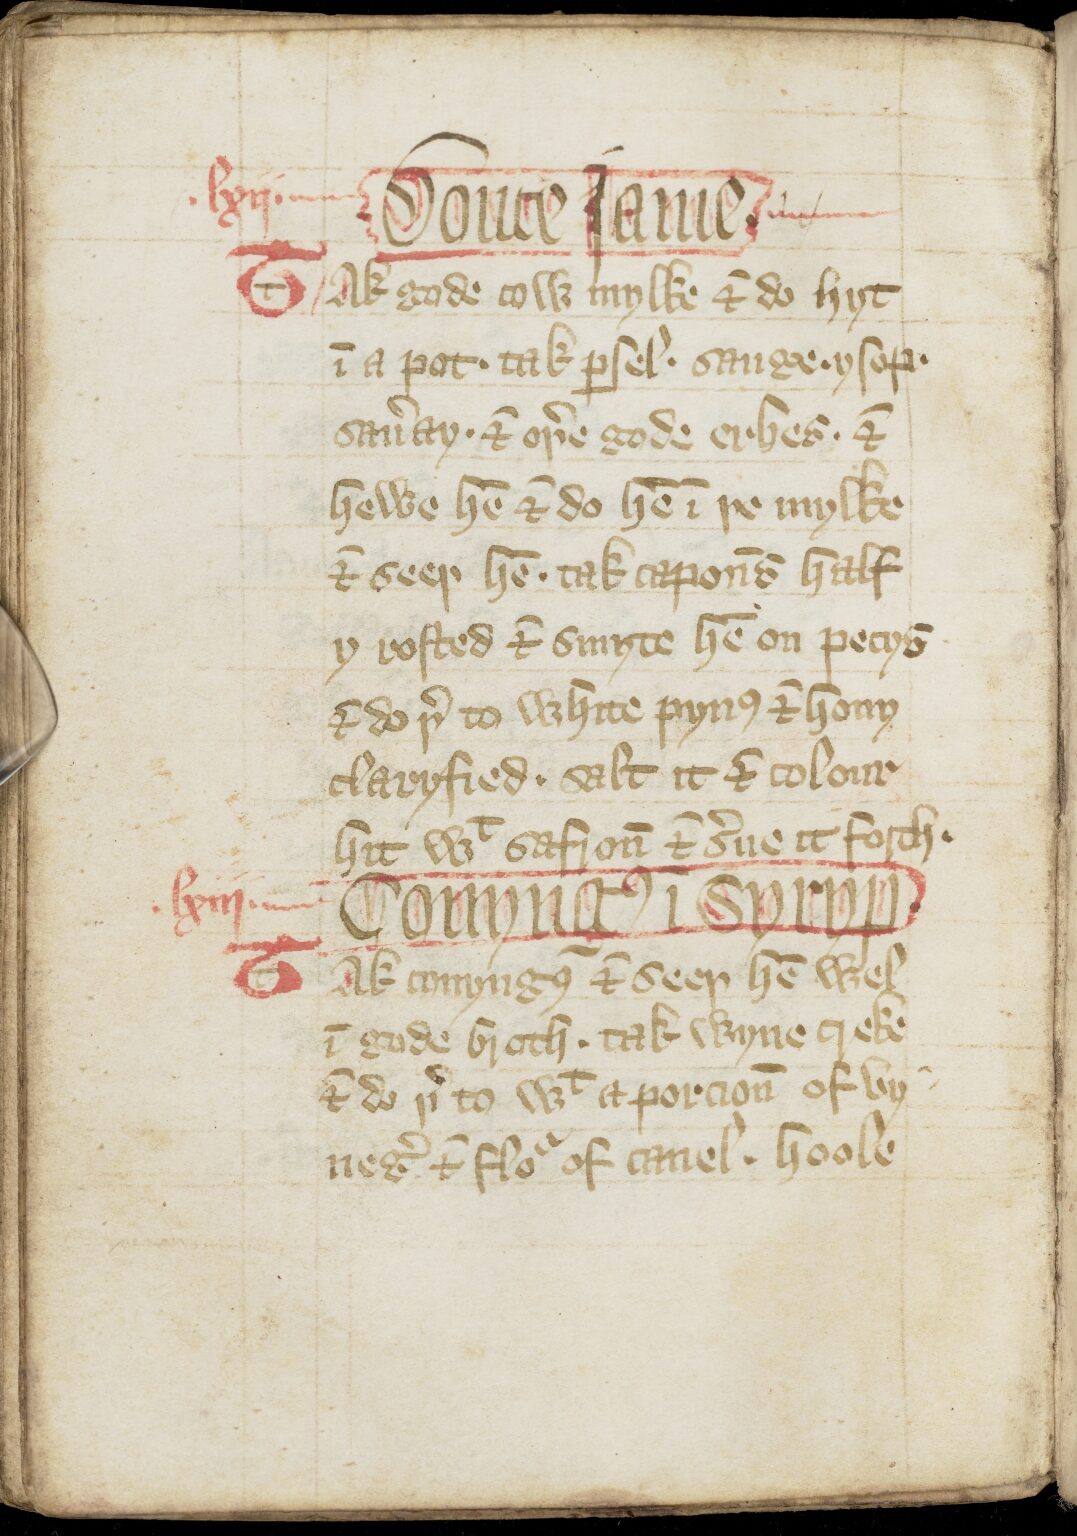 .lxii. Douce Jame.
TAk gode cow mylke & do hyt
ī a pot. tak ꝑsel. sauge. ysop.
sau͛ay. & oþ͛e gode erbes. &
hewe hē & do hē ī þe mylke
& seeþ hē. tak capon̄s half
y rosted & smyte hē on pecys
& do þ͛ to white pynꝰ & hony
claryfied. salt it & colour
hit wᵗ safron̄ & s͛ue it forth.
.lxiii. Conyngꝰ ī Syryp.
TAk conyngꝰ & seeþ hē wel
ī gode broth. tak wyne creke
& do þ͛ to wᵗ a porcion̄ of vy
neg͛ & floᵘ of canel. hoole